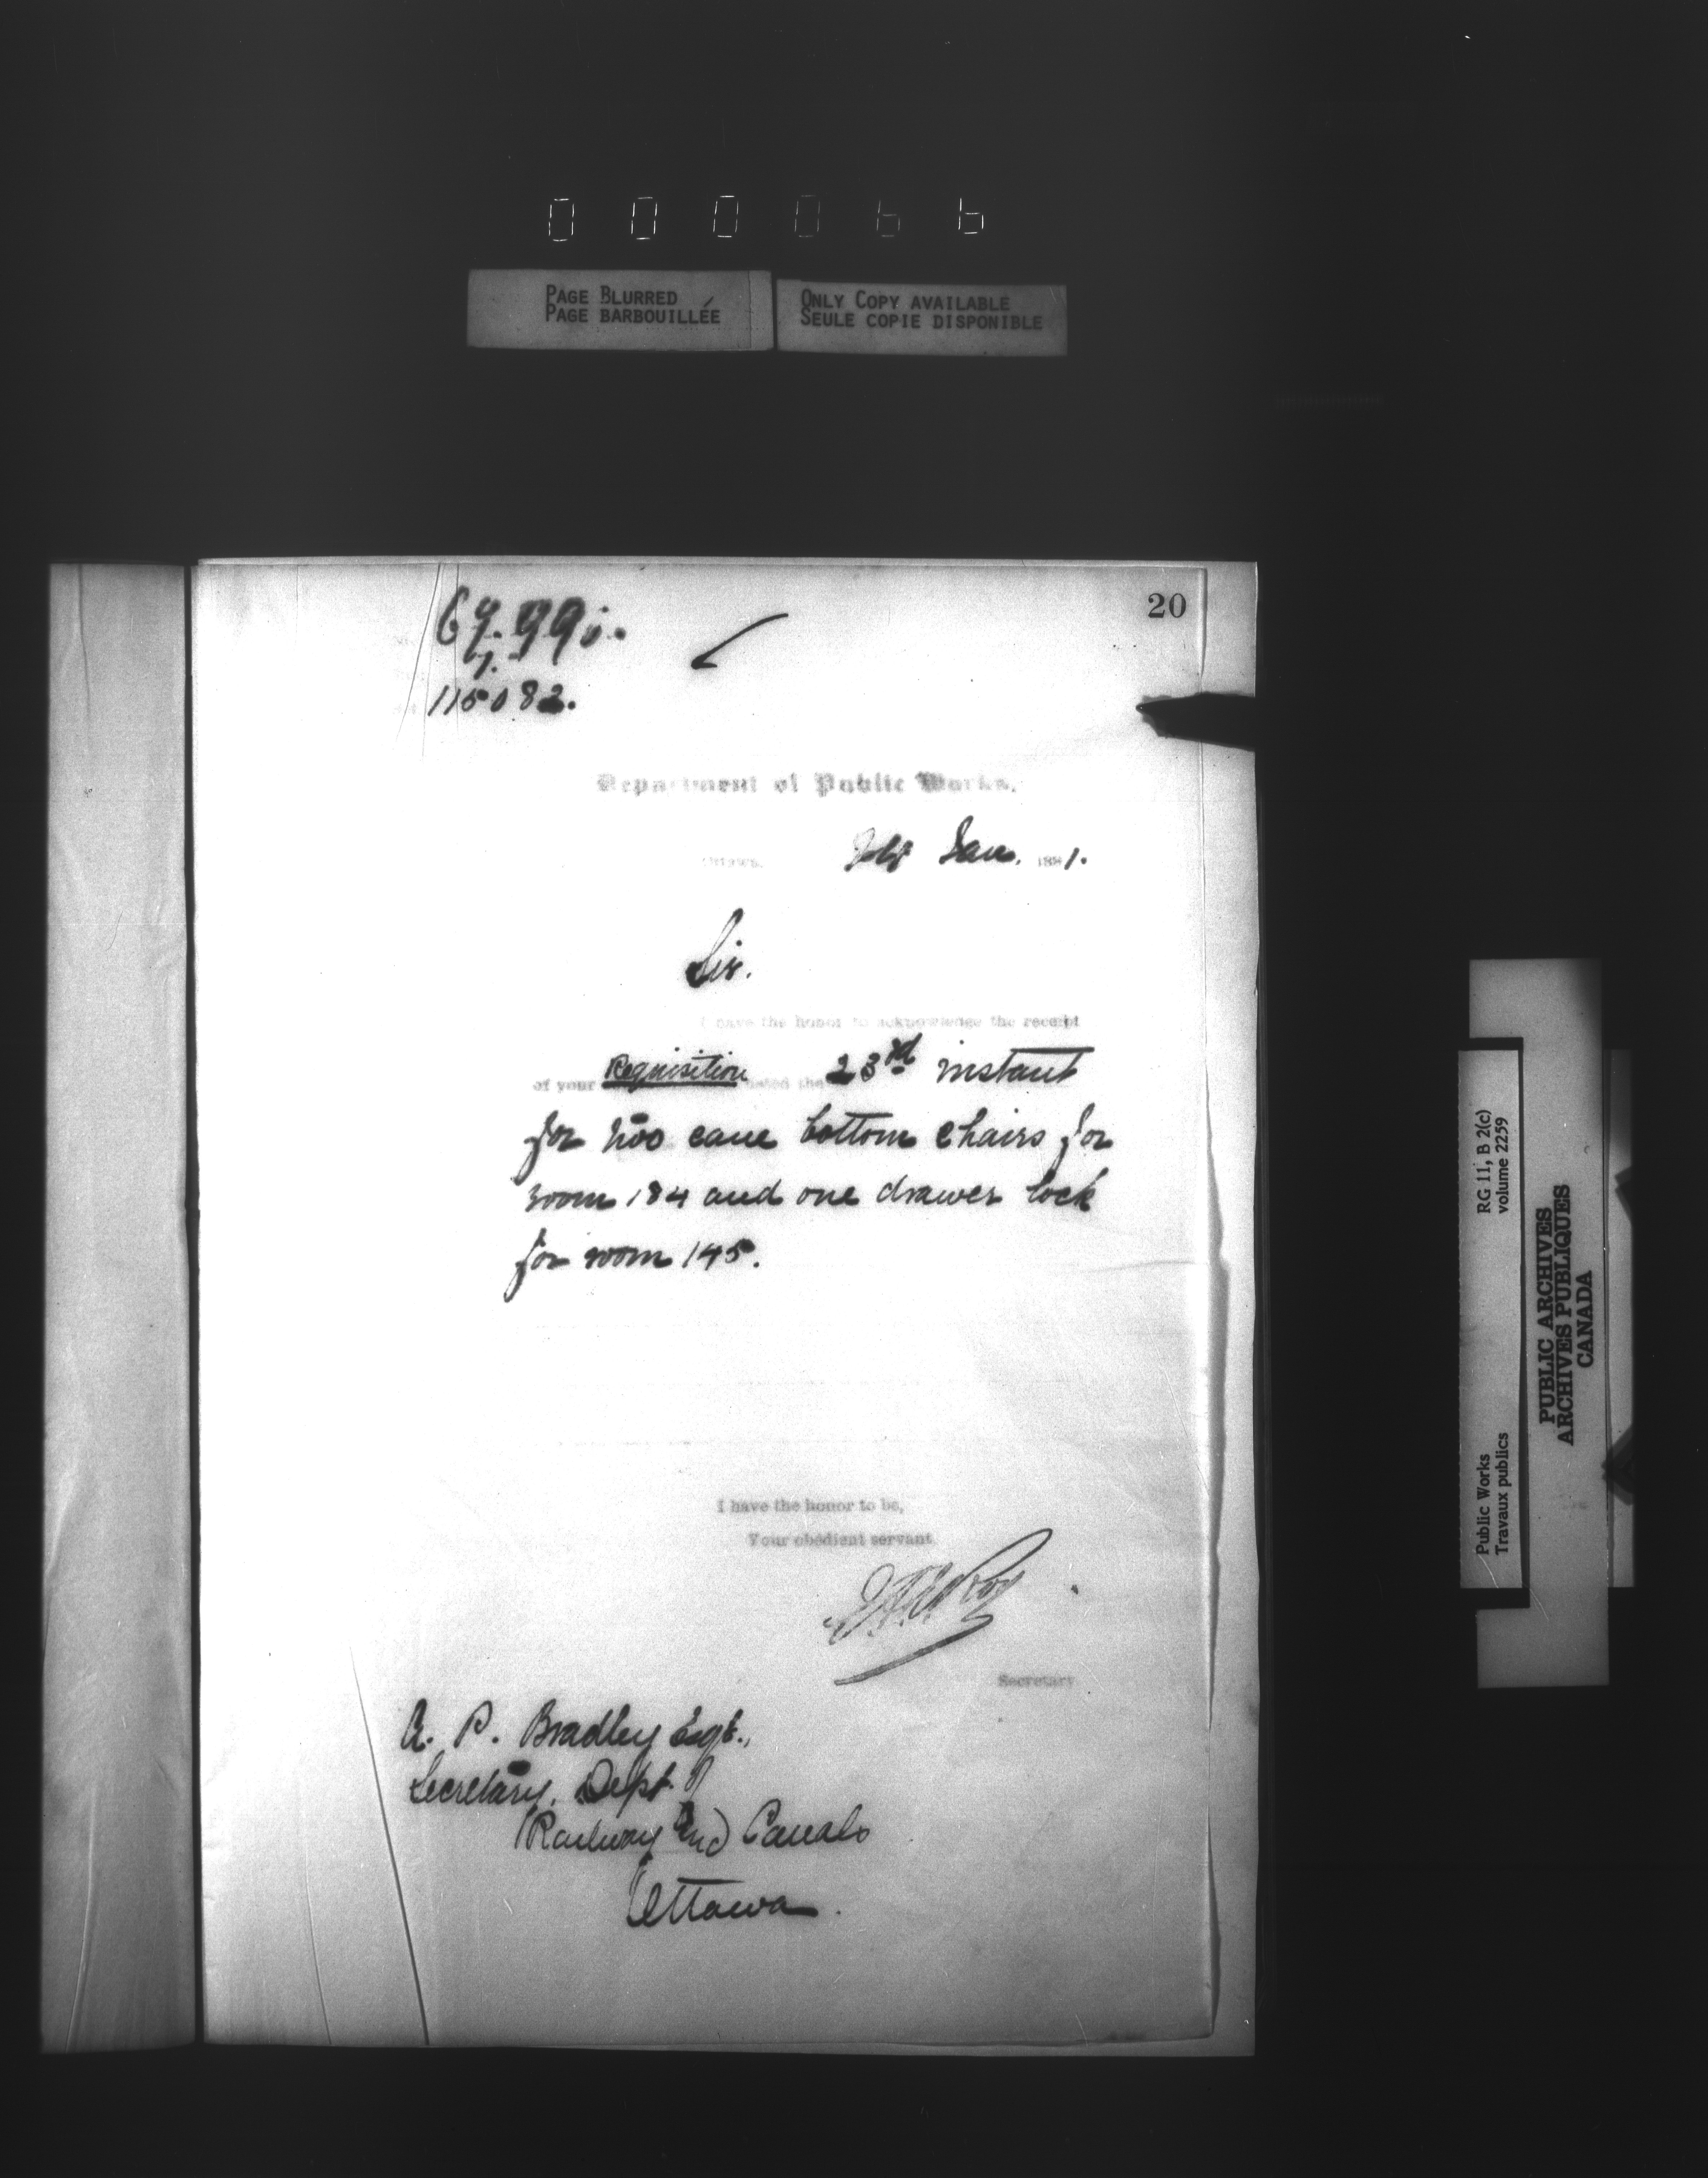 000066
PAGE BLURRED
PAGE BARBOUILLÉE
ONLY COPY AVAILABLE
SEULE COPIE DISPONIBLE
20
115082.
Department of Public Works.
Ottawa. Jan. 1881.
Sir.
I have the honor to acknowledge the receipt
of your Requisition dated the 23rd instant
for two cane bottom chairs for
room 184 and one drawer lock
for room 145.
I have the honor to be,
Your obedient servant
Secretary
A. P. Bradley Esqr.,
Secretary, Dept. of
Railway and Canals
Ottawa.
Public Works
Travaux publics
RG 11, B 2(c)
volume 2259
PUBLIC ARCHIVES
ARCHIVES PUBLIQUES
CANADA